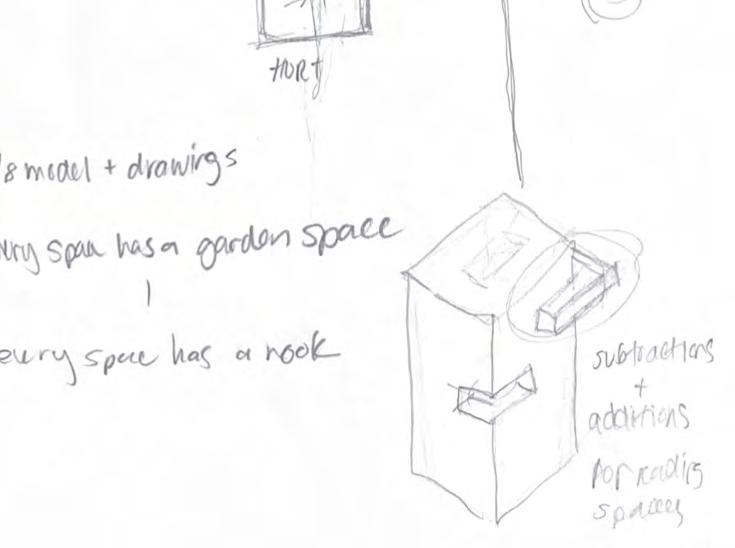 HORT
/8 model + drawings
every space has a garden space
|
every space has a nook
subtractions
+
additions
for reading
spaces